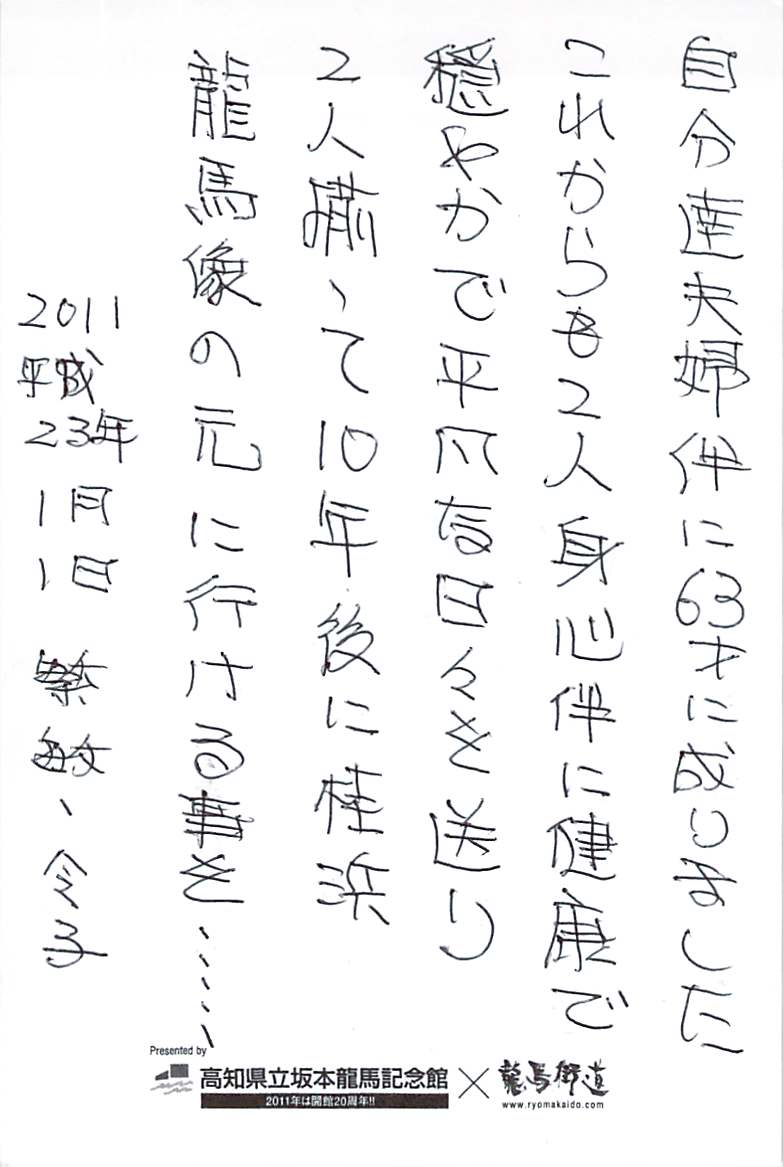 自分達夫婦伴に63才に成りました
これからも2人身心伴に健康で
穏やかで平凡な日々を送り
2人揃って10年後に桂浜
龍馬像の元に行ける事を……
2011
平成
23年
1月
1日
繁敏、令子
Presented by
高知県立坂本龍馬記念館×龍馬街道
2011年は開館20周年!!
www.ryomakaido.com